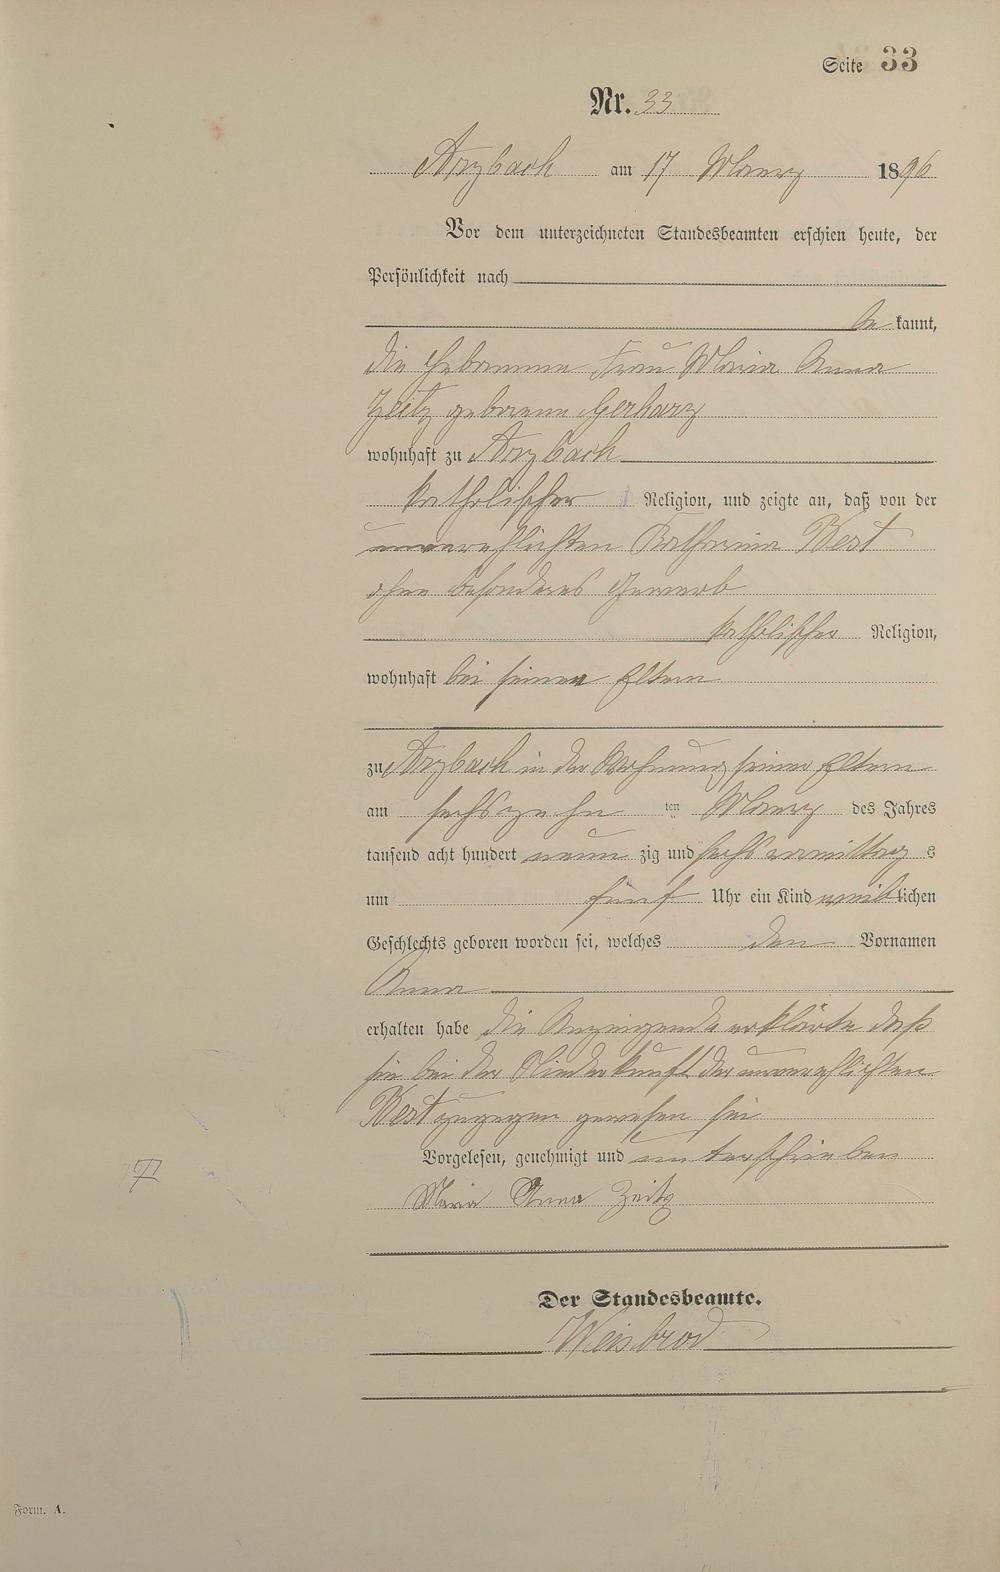 Seite 33
Nr. 33
Arzbach am 17 Maerz 1896
Vor dem unterzeichneten Standesbeamten erschien heute, der
Persönlichkeit nach
be kannt,
die Hebamme Frau Maria Anna
Zeitz geborene Gerharz
wohnhaft zu Arzbach
katholischer Religion, und zeigte an, daß von der
unverehlichten Katharina Best
ohne besonderes Gewerb
katholischer Religion,
wohnhaft bei seinen Eltern
zu Arzbach in der Wohnung seiner Eltern
am sechszehn ten Maerz des Jahres
tausend acht hundert neun zig und sechs vormittag s
um fünf Uhr ein Kind weiblichen
Geschlechts geboren worden sei, welches den Vornamen
Anna
erhalten habe die Anzeigende erklärte daß
sie bei der Niederkunft der unverehlichten
Best zugegen gewesen sei
Vorgelesen, genehmigt und unterschrieben
Maria Anna Zeitz
Der Standesbeamte.
Weisbrod
Form. A.